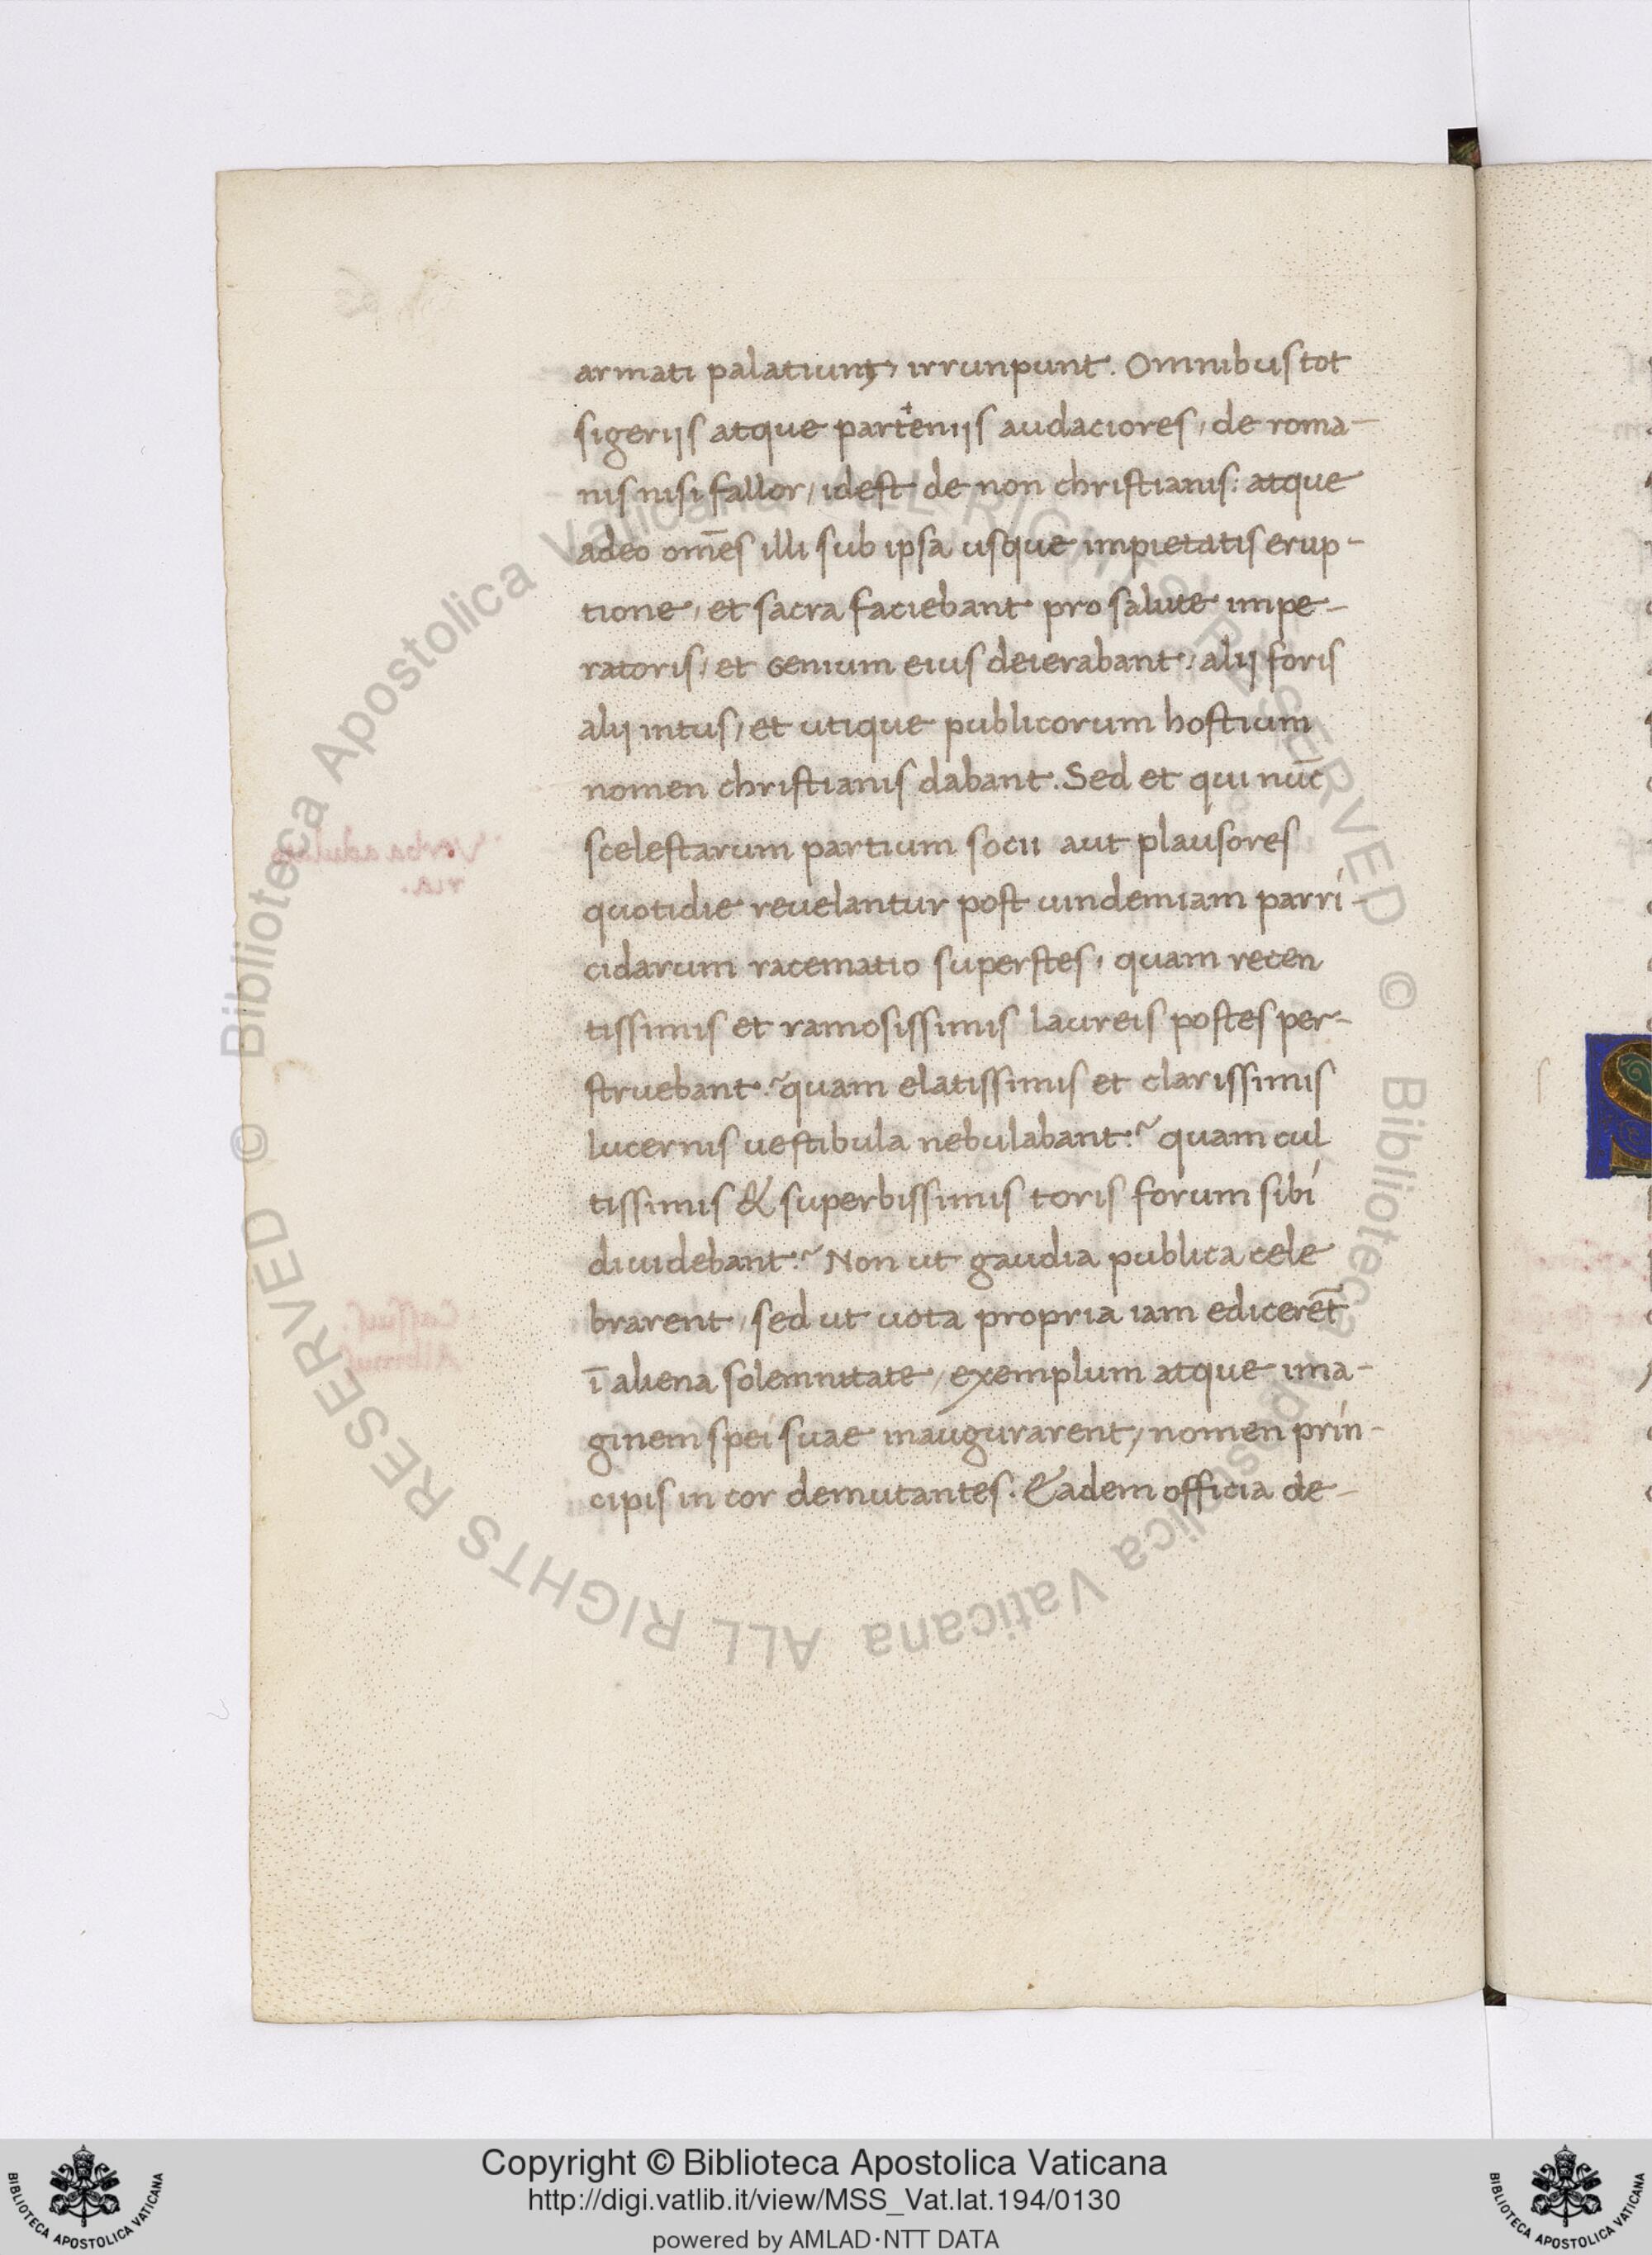 armati palatium, irrunpunt. Omnibus tot
sigerijs atque partenijs audaciores, de roma-
nis nisi fallor, idest de non christianis: atque
adeo om̄es illi sub ipsa usque impietatis erup-
tione, et sacra faciebant pro salute impe-
ratoris, et Genium eius deierabant, alij foris
alij intus, et utique publicorum hostium
nomen christianis dabant. Sed et qui nūc
scelestarum partium socii aut plausores
quotidie reuelantur post uindemiam parri-
cidarum racematio superstes, quam recen
tissimis et ramosissimis laureis postes per-
struebant? quam elatissimis et clarissimis
lucernis uestibula nebulabant? quam cul
tissimis & superbissimis toris forum sibi
diuidebant? Non ut gaudia publica cele
brarent, sed ut uota propria iam edicerēt
ī aliena solemnitate, exemplum atque ima-
ginem spei suae inaugurarent, nomen prin-
cipis in cor demutantes. Eadem officia de-
© Biblioteca Apostolica Vaticana ALL RIGHTS RESERVED © Biblioteca Apostolica Vaticana ALL RIGHTS RESERVED
Copyright © Biblioteca Apostolica Vaticana
http://digi.vatlib.it/view/MSS_Vat.lat.194/0130
powered by AMLAD·NTT DATA
BIBLIOTECA APOSTOLICA VATICANA
BIBLIOTECA APOSTOLICA VATICANA